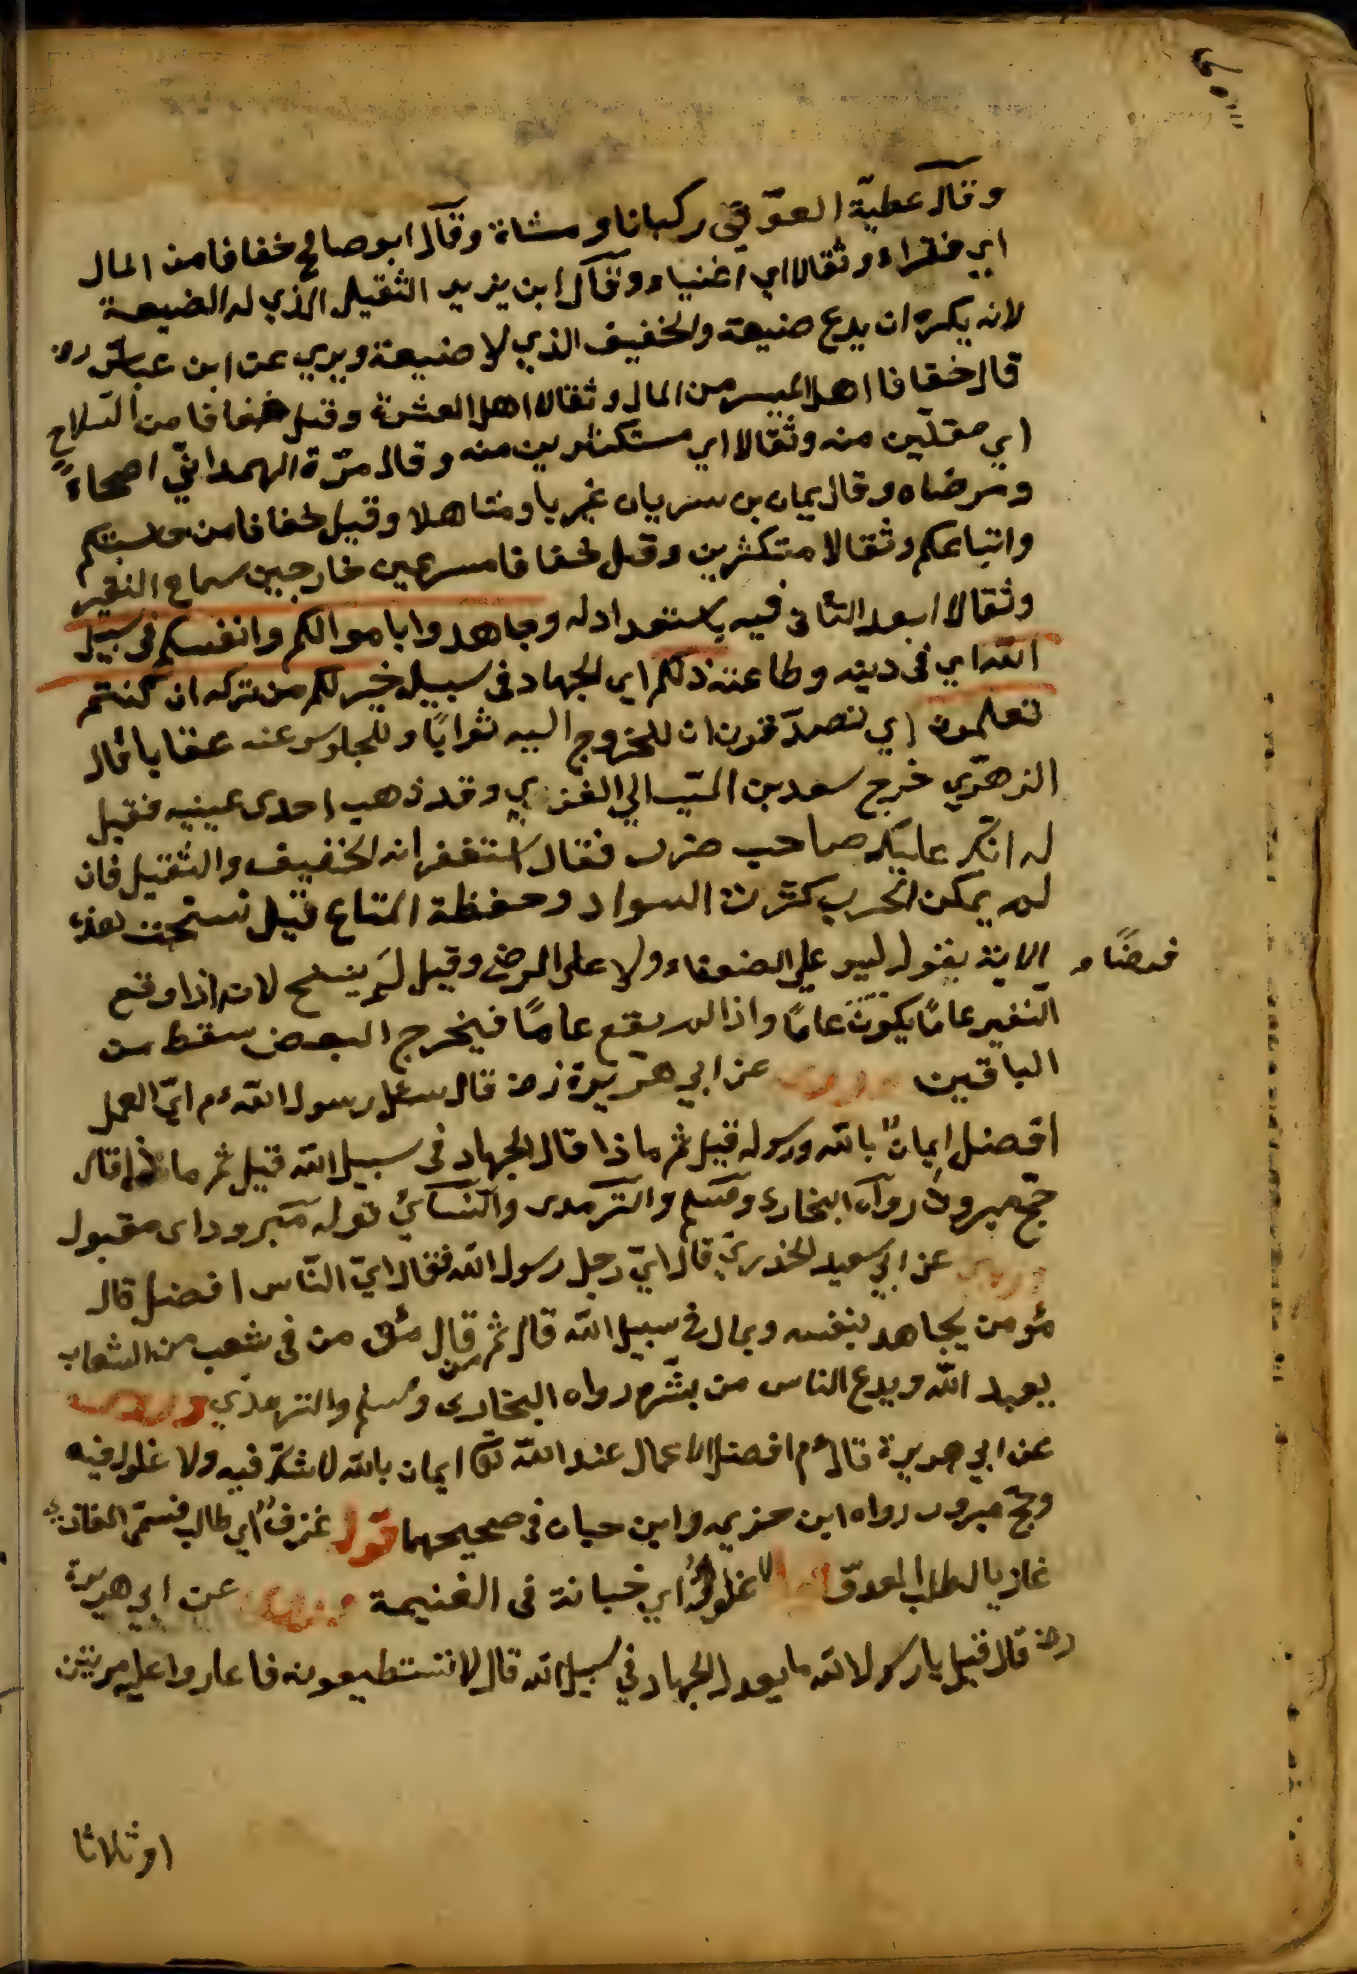 وقال عطية العوفي ركبانا ومشاة وقال ابو صالح خفافا من المال
اي فقراء وثقالا اي اغنياء وقال ابن يزيد الثقيل الذي له الضيعة
لانه يكره ان يدع ضيعة والخفيف الذي لا ضيعة ويرى عن ابن عباس رض
قال خفافا اهل الميسر من المال وثقالا اهل العشرة وقيل خفافا من السلاح
اي مقلين منه وثقالا اي مستكثرين منه وقال مرّة الهمداني اصحاءً
ومرضاه وقال يمان بن رباب غربا ومتاهلا وقيل خفافا من حاشيتكم
واتباعكم وثقالا متكثرين وقيل خفافا مسرعين خارجين سماع النفير
وثقالا بعد التأني فيه والاستعداد له وجاهدوا باموالكم وانفسكم في سبيل
الله اي في دينه وطاعته ذلكم اي الجهاد في سبيله خير لكم من تركه ان كنتم
تعلمون اي تصدقون ان للخروج اليه ثوابًا وللجلوس عنه عقابا قال
الزهري خرج سعد بن المسيب الي الغزي وقد ذهب احدى عينيه فقيل
له انك عليك صاحب ضرر فقال استغفر انه الخفيف والثقيل فان
لم يمكن الحرب كثرت السواد وحفظة المتاع قيل نسخت هذه
الاية بقوله ليس علي الضعفاء ولا على المرضى وقيل لم ينسخ لانه اذا وقع
فرضًا و
النفير عامًا يكون عامًا واذا لم يقع عامًا فيخرج البعض سقط من
الباقين عن ابي هريرة رض قال سئل رسول الله م اي العمل
افضل ايمان بالله ورسوله قيل ثم ماذا قال الجهاد في سبيل الله قيل ثم ماذا قال
حج مبرور رواه البخاري ومسلم والترمدى والنسائي قوله مبرور اى مقبول
عن ابي سعيد الخدري قال اتي رجل رسول الله فقال اي الناس افضل قال
مؤمن يجاهد بنفسه وبمال في سبيل الله قال ثم من قال مؤمن في شعب من الشعاب
يعبد الله ويدع الناس من بشره رواه البخارى ومسلم والترمذي
عن ابي هريرة قال م افضل الاعمال عند الله تع ايمان بالله لا شك فيه ولا غلول فيه
وحج مبرور رواه ابن خزيمه وابن حبان في صحيحهما قوله غزو اي طالب فسمى الغازي
غازيا لطلب العدو لا غلول اي خيانة في الغنيمة عن ابي هريرة
رض قال قيل يا رسول الله ما يعدل الجهاد في سبيل الله قال لا تستطيعونه فاعادوا عليه مرتين
او ثلاثا